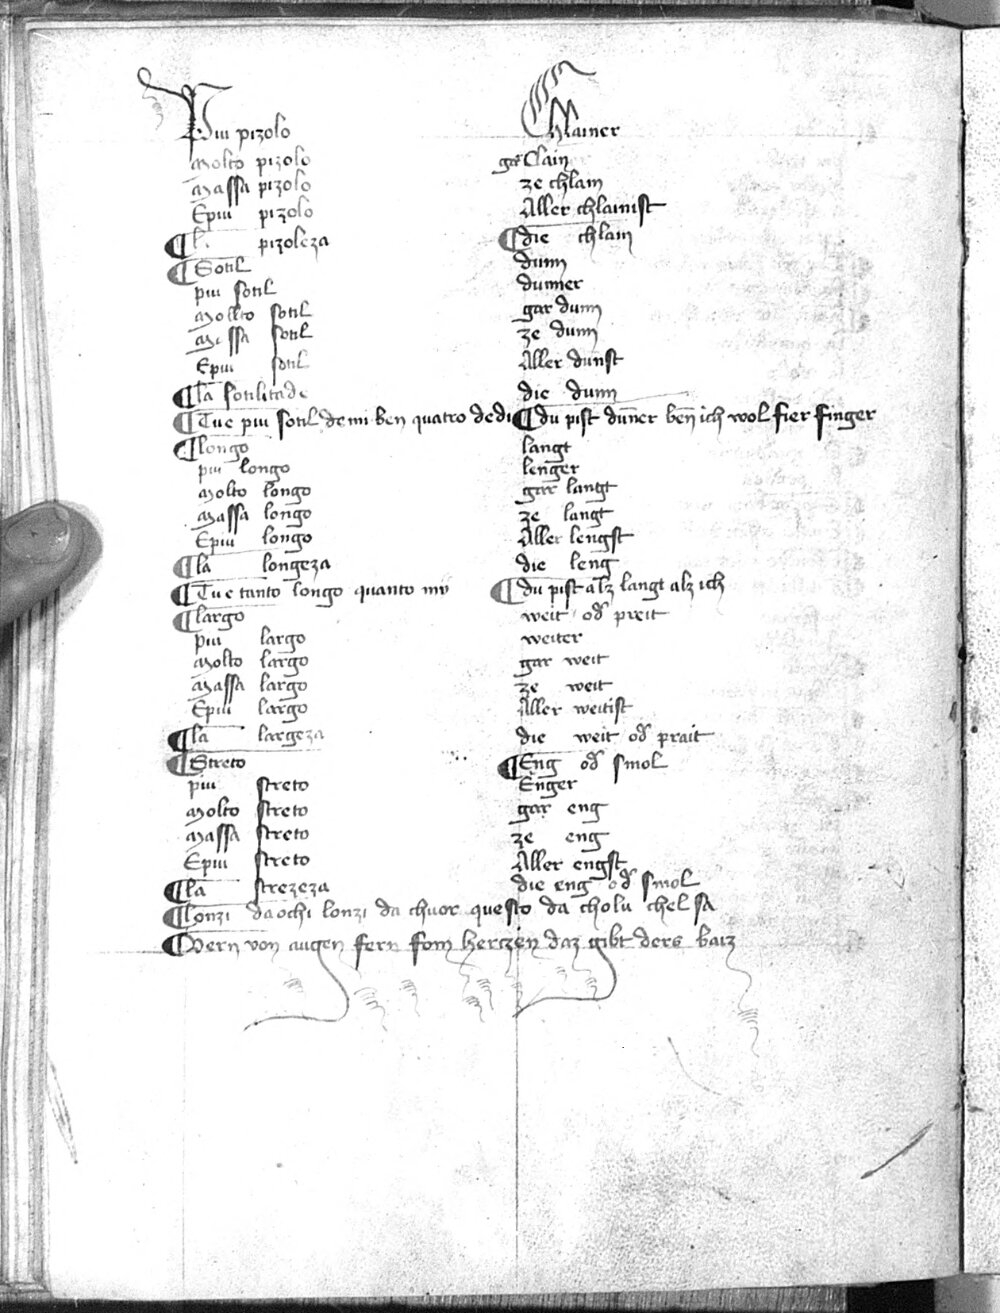 Piu pizolo Chlainer
molto pizolo gar Clain
massa pizolo ze chlain
Epiu pizolo Aller chlainist
¶ la pizoleza ¶ die chlain
¶ Sotil dunn
piu sotil dunner
mollto sotil gar dunn
massa sotil ze dunn
Epiu sotil Aller dunst
¶ la sotilitade die dunn
¶ Tu e piu sotil de mi ben quatro dedi ¶ du pist duner ben ich wol fier finger
¶ longo langt
piu longo lenger
molto longo gar langt
massa longo ze langt
Epiu longo Aller lengst
¶ la longeza die leng
¶ Tu e tanto longo quanto mi ¶ du pist alz langt alz ich
¶ largo weit od preit
piu largo weiter
molto largo gar weit
massa largo ze weit
Epiu largo Aller weitist
¶ la largeza die weit od prait
¶ Streto ¶ Eng od smol
piu streto Enger
molto streto gar eng
massa streto ze eng
Epiu streto Aller engst
¶ la strezeza die eng od smol
¶ Lonzi da ochi lonzi da chuor questo da cholu chel sa
¶ Vern von augen fern fom hertzen daz gibt ders baiz